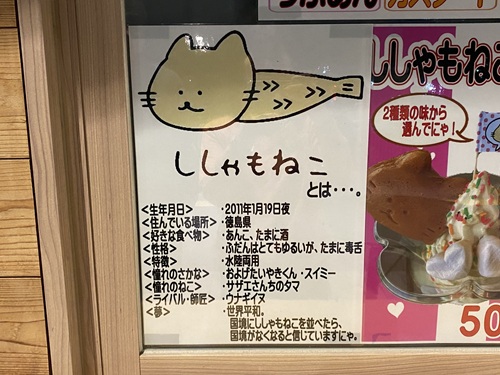 ししゃもねこ
とは・・・。
<生年月日> ・2011年1月19日夜
<住んでいる場所> ・徳島県
<好きな食べ物> ・あんこ、たまに酒
<性格> ・ふだんはとてもゆるいが、たまに毒舌
<特徴> ・水陸両用
<憧れのさかな> ・およげたいやきくん・スイミー
<憧れのねこ> ・サザエさんちのタマ
<ライバル・師匠> ・ウナギイヌ
<夢> ・世界平和。
国境にししゃもねこを並べたら、
国境がなくなると信じていますにゃ。
ししゃもねこ
2種類の味から
選んでにゃ!
50